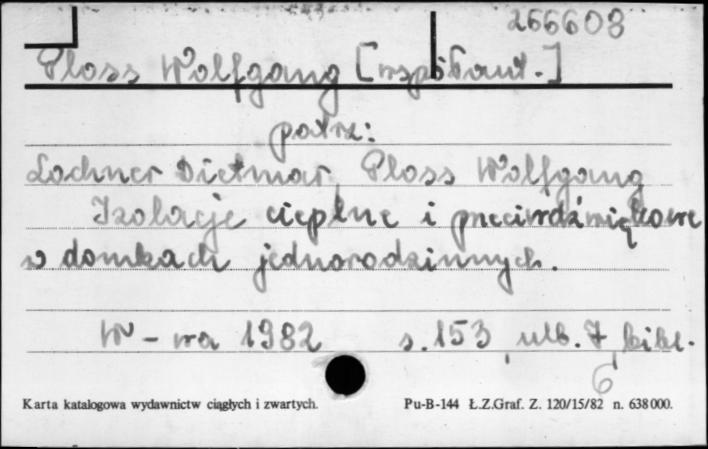 266608
Ploss Wolfgang [współaut.]
patrz:
Lochner Dietmar, Ploss Wolfgang
Izolacje cieplne i przeciwdźwiękowe
w domkach jednorodzinnych.
W-wa 1982 s. 153, nlb. 7, bibl.
6
Karta katalogowa wydawnictw ciągłych i zwartych. Pu-B-144 Ł.Z.Graf. Z. 120/15/82 n. 638000.